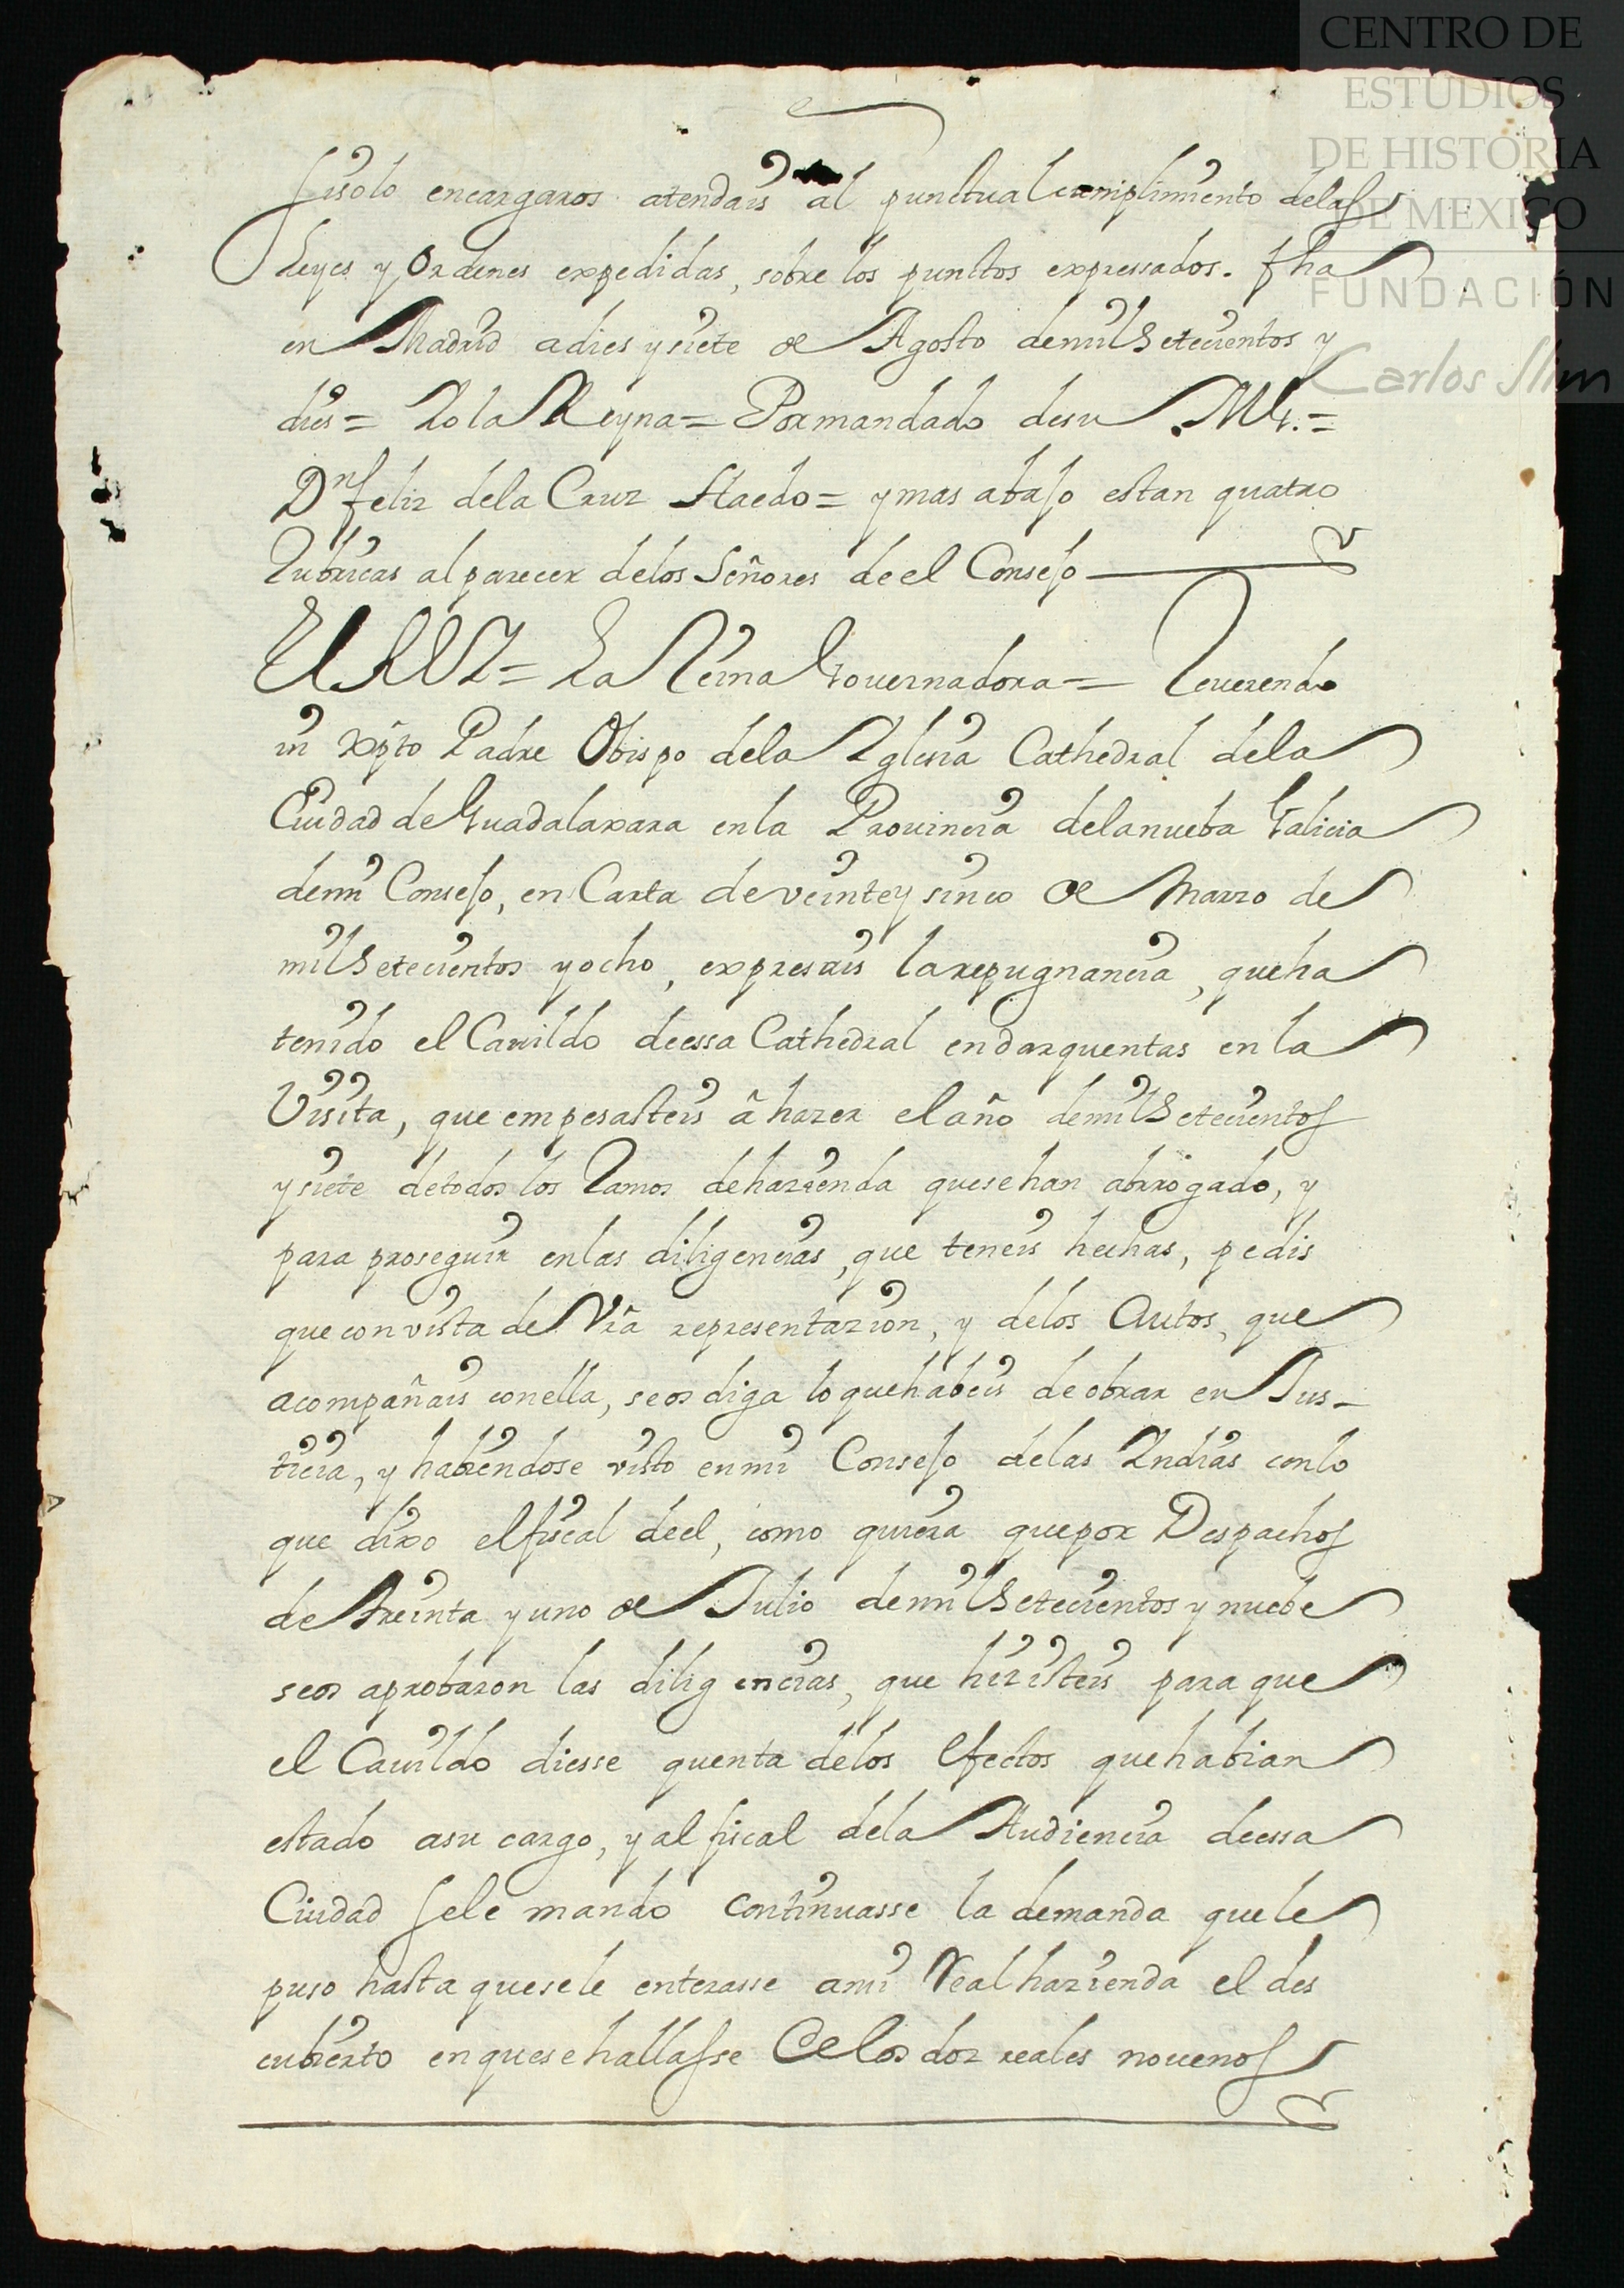 CENTRO DE
ESTUDIOS
DE HISTORIA
DE MEXICO
FUNDACIÓN
Carlos Slim
sisolo encargaros atendais al punctual cumplimiento delas
Leyes y Ordenes expedidas, sobre los punctos expressados. fha
en Madrid a dies y siete de Agosto demill Setecientos y
dies = Yo la Reyna = Por mandado desu Mg. =
Dn feliz dela Cruz Haedo = y mas abajo estan quatro
Rubricas al parecer delos Señores de el Consejo
El REY = La Reina Governadora = Reverendo
in xpto Padre Obispo dela Yglesia Cathedral dela
Ciudad de Guadalaxara en la Provincia delanueba Galicia
demi Consejo, en Carta de veinte y sinco de Marzo de
mill Setecientos y ocho, expresais la repugnancia, queha
tenido el Cavildo deessa Cathedral en dar quentas en la
Visita, que empesasteis â hazer el año demill Setecientos
y siete detodos los Ramos de hazienda que se han abrrogado, y
para proseguir en las diligencias, que teneis hechas, pedis
que con vista de Vrâ representazion, y delos Autos, que
acompañais con ella, se os diga lo que habeis de obrar en Jus-
ticia, y habiendose visto en mi Consejo delas Yndias con lo
que dixo el fiscal deel, como quiera que por Despachos
de treinta y uno de Julio demill Setecientos y nuebe
se os aprobaron las diligencias, que hizisteis para que
el Cavildo diesse quenta delos efectos que habian
estado asu cargo, y al fiscal dela Audiencia deessa
Ciudad se le mando continuasse la demanda que le
puso hasta que se le enterasse a mi Real hazienda el des
cubierto en que se hallasse de los dos reales novenos